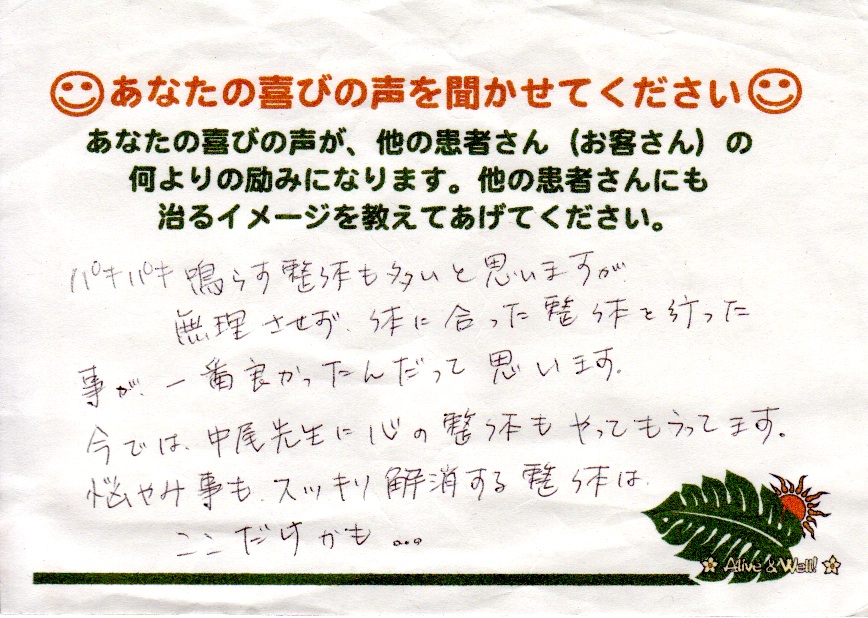 あなたの喜びの声を聞かせてください
あなたの喜びの声が、他の患者さん（お客さん）の
何よりの励みになります。他の患者さんにも
治るイメージを教えてあげてください。
パキパキ鳴らす整体も多いと思いますが、
無理させず、体に合った整体を行った
事が、一番良かったんだって思います。
今では、中尾先生に心の整体もやってもらってます。
悩やみ事も、スッキリ解消する整体は、
ここだけかも...。
Alive & Well!